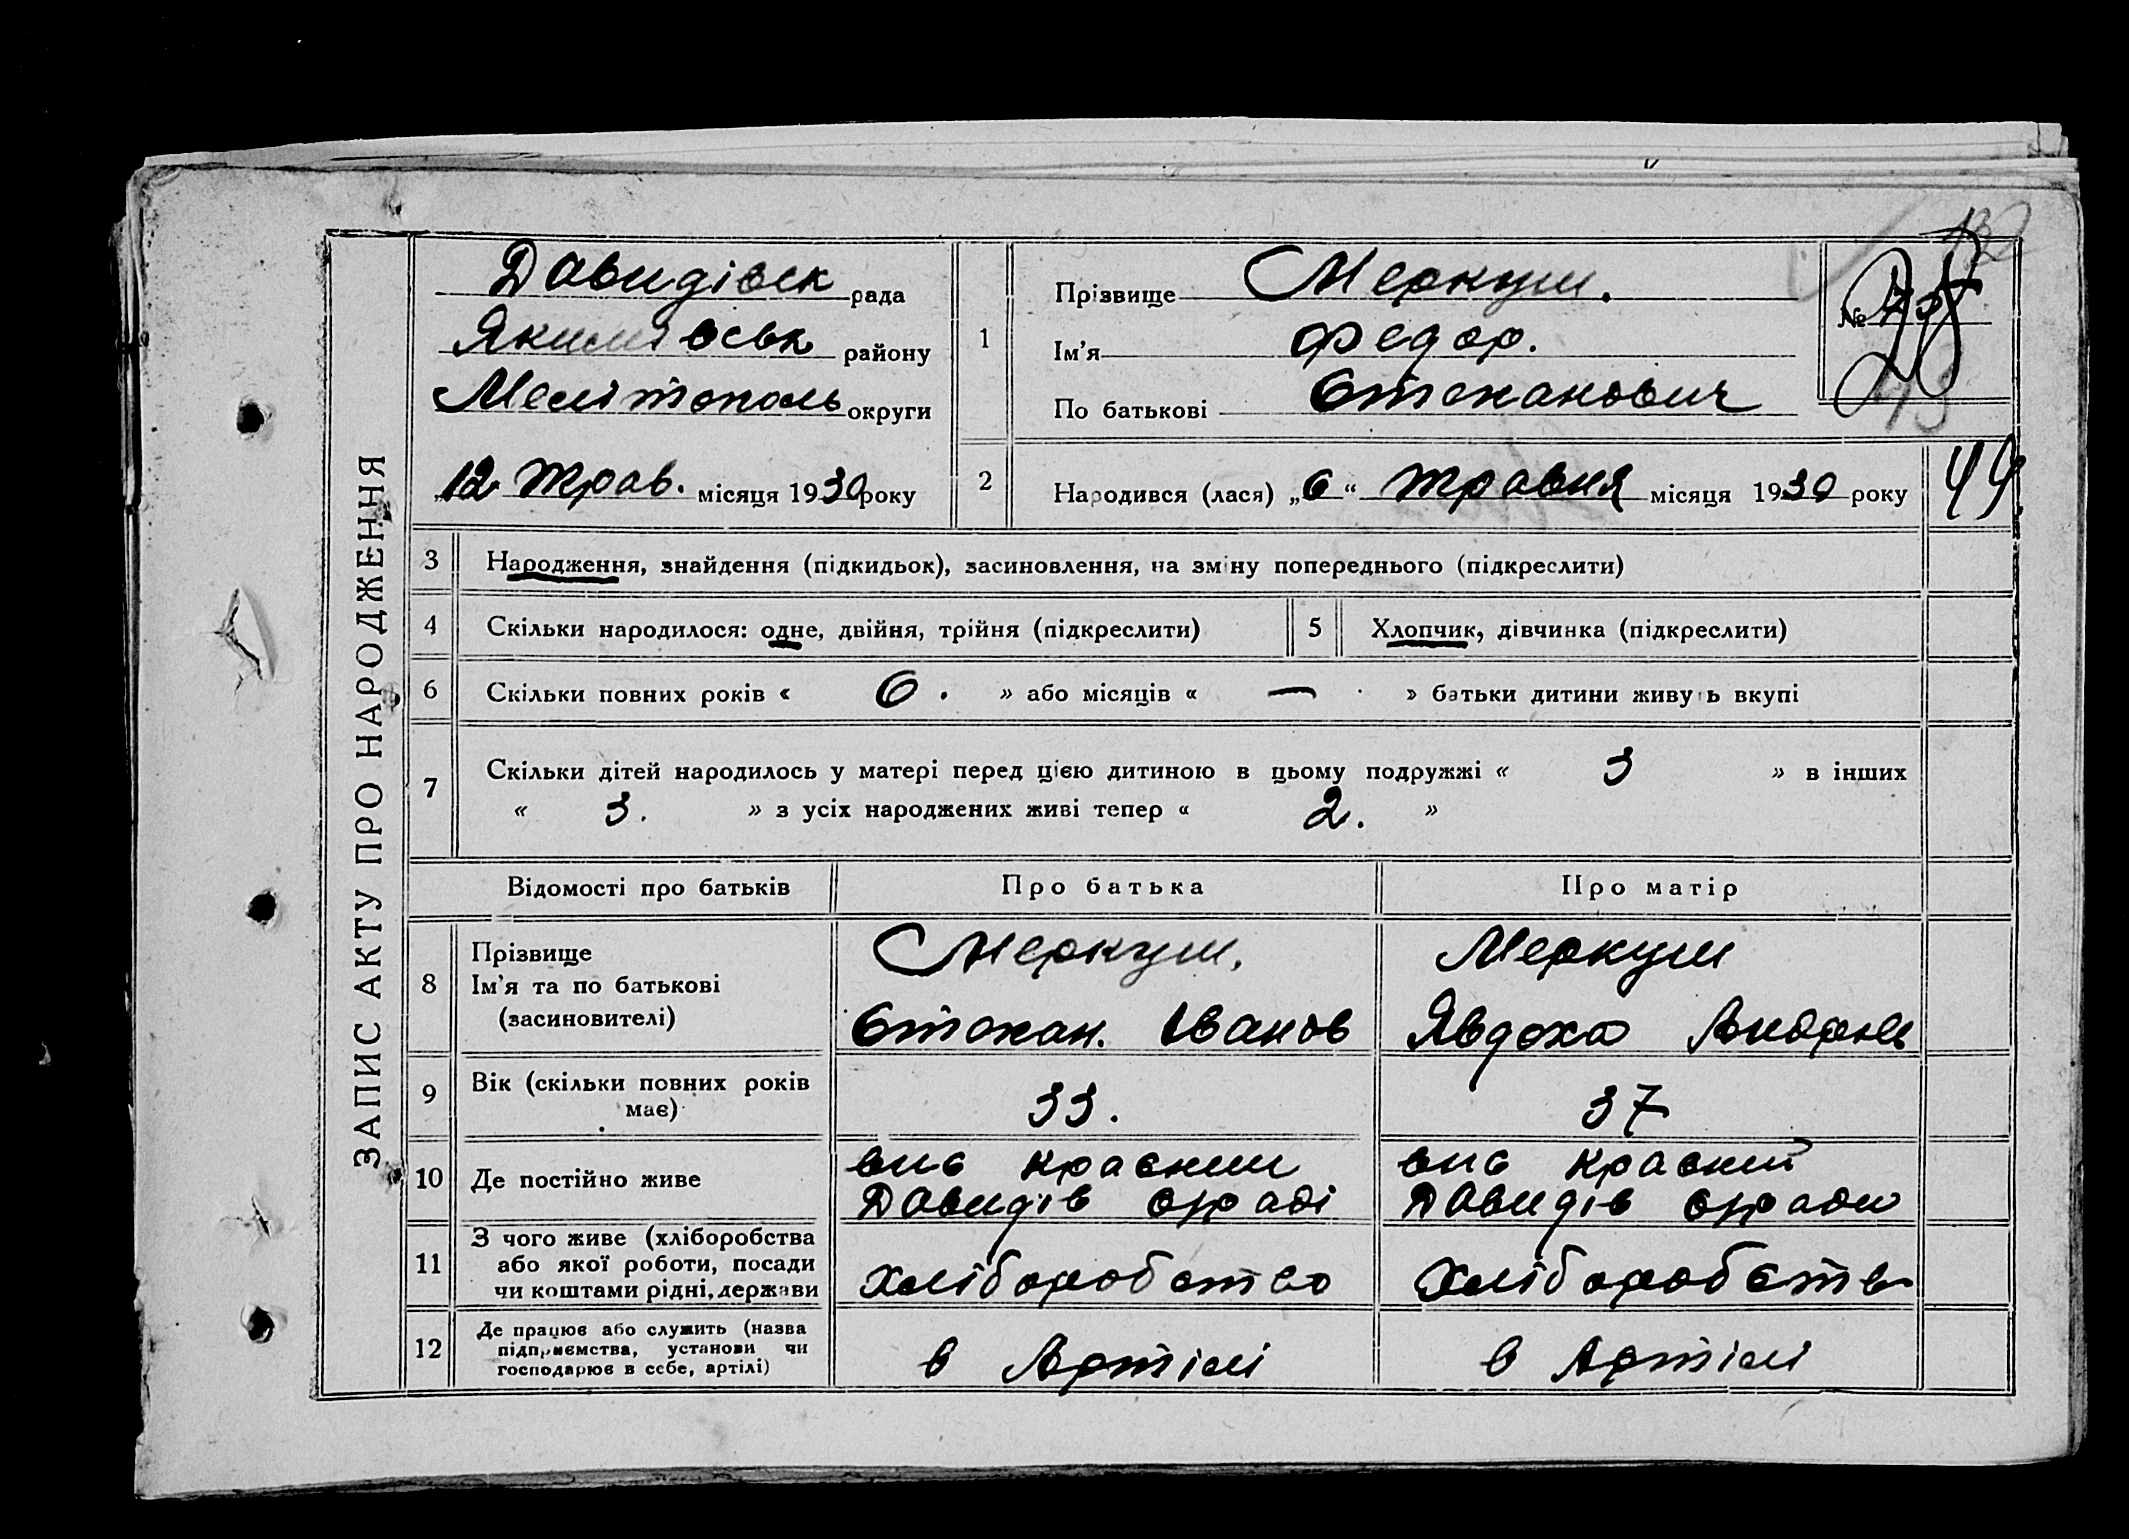 ЗАПИС АКТУ ПРО НАРОДЖЕННЯ
Давидівск рада
Якимівськ району
Мелітополь округи
„12 Трав. місяця 1930 року
1
Прізвище Меркуш.
Ім’я Федор.
По батькові Стеханович
№
2
Народився (лася) „6“ травня місяця 1930 року
44.
3 Народження, знайдення (підкидьок), засиновлення, на зміну попереднього (підкреслити)
4 Скільки народилося: одне, двійня, трійня (підкреслити)
5 Хлопчик, дівчинка (підкреслити)
6 Скільки повних років « 6. » або місяців « — » батьки дитини живуть вкупі
7 Скільки дітей народилось у матері перед цією дитиною в цьому подружжі « 3 » в інших
« 3. » з усіх народжених живі тепер « 2. »
Відомості про батьків Про батька Про матір
8 Прізвище
Ім’я та по батькові
(засиновителі)
Меркуш.
Стехан. Іванов
Меркуш
Явдоха Андрєєв
9 Вік (скільки повних років
має)
33.
37
10 Де постійно живе
вис красний
Давидів сраді
вис красний
Давидів сради
11 З чого живе (хліборобства
або якої роботи, посади
чи коштами рідні, держави
хліборобство
хліборобств
12 Де працює або служить (назва
підприємства, установи чи
господарює в себе, артілі)
в Артілі
в Артілі